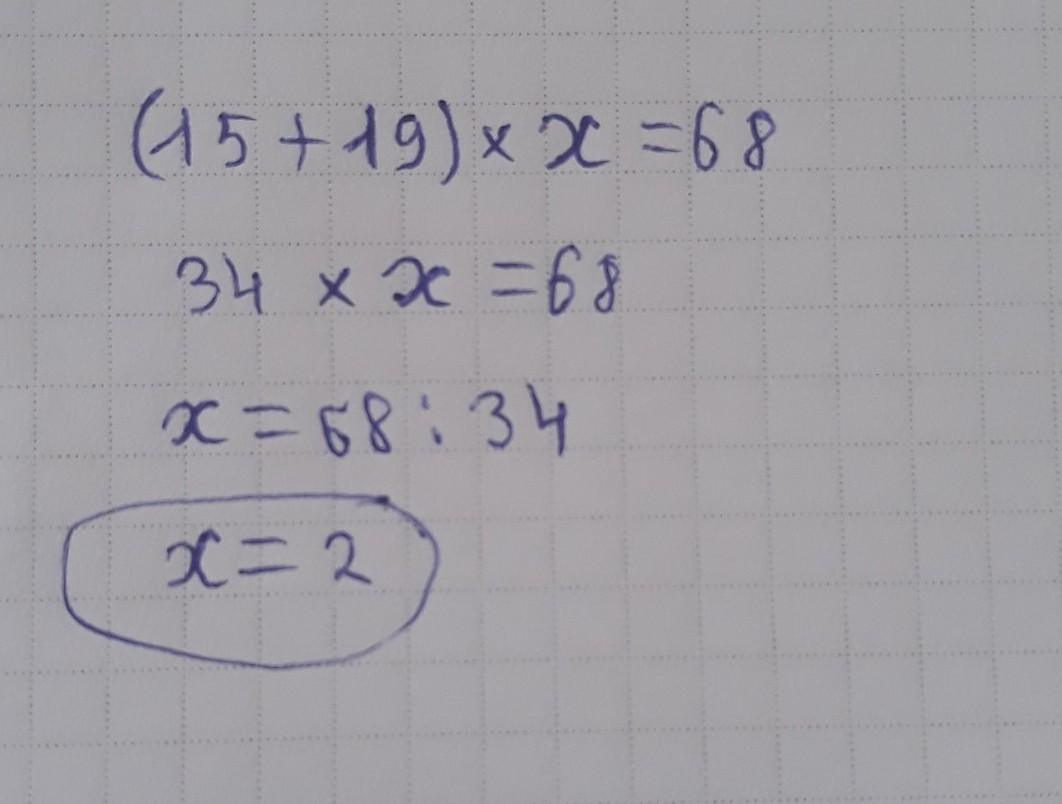 (15+19) × x = 68
34 × x = 68
x = 68 : 34
x = 2